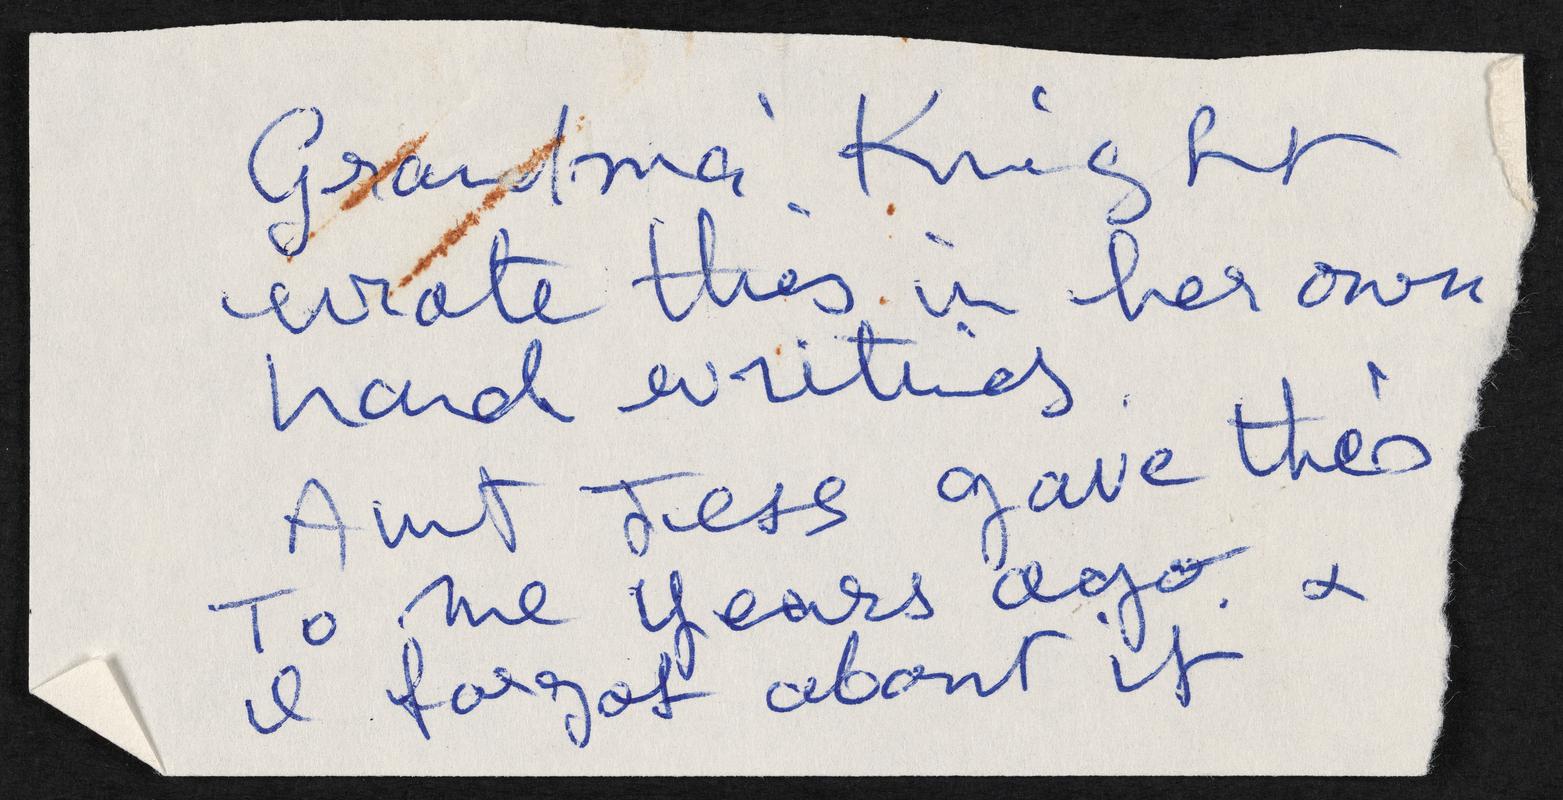 Grandma Knight
wrote this in her own
hand writing.
Aunt Jess gave this
To me years ago. &
I forgot about it